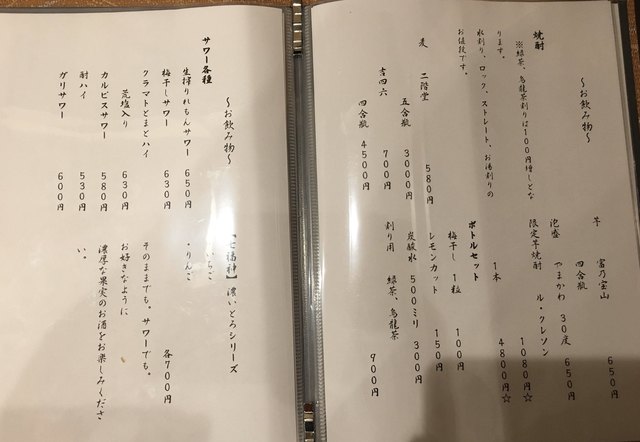 ～お飲み物～
焼酎
※緑茶、烏龍茶割りは100円増しとな
ります。
水割り、ロック、ストレート、お湯割りの
お値段です。
麦　二階堂　580円
五合瓶　3000円
吉四六　700円
四合瓶　4500円
芋　富乃宝山　650円
四合瓶
泡盛　やまかわ　30度　650円
限定芋焼酎　ル・クレソン
1080円☆
1本　4800円☆
ボトルセット
梅干し　1粒　100円
レモンカット　150円
炭酸水　500ミリ　300円
割り用　緑茶、烏龍茶
900円
～お飲み物～
サワー各種
生搾りれもんサワー　650円
梅干しサワー　630円
クラマトとまとハイ
荒塩入り　630円
カルピスサワー　580円
酎ハイ　530円
ガリサワー　600円
【七福神】濃いとろシリーズ
・いちご
・りんご
各700円
そのままでも。サワーでも。
お好きなように
濃厚な果実のお酒をお楽しみくださ
い。